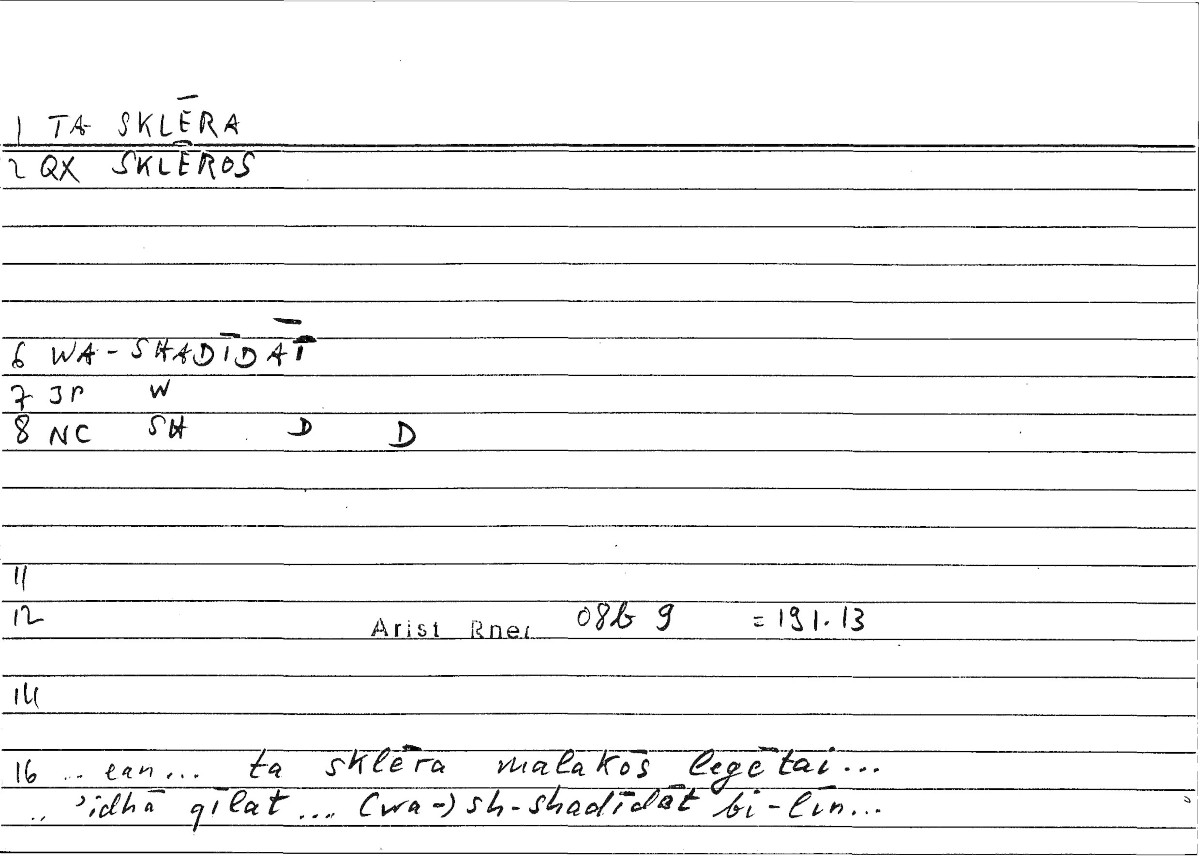 1 TA SKLĒRA
2 QX SKLĒROS
6 WA-SHADĪDĀT
7 JP W
8 NC SH D D
11
12 Arist Rhet 08b 9 = 191.13
14
16 .. ean... ta sklēra malakōs legētai...
.. 'idhā qīlat ... (wa-) sh-shadīdāt bi-līn...